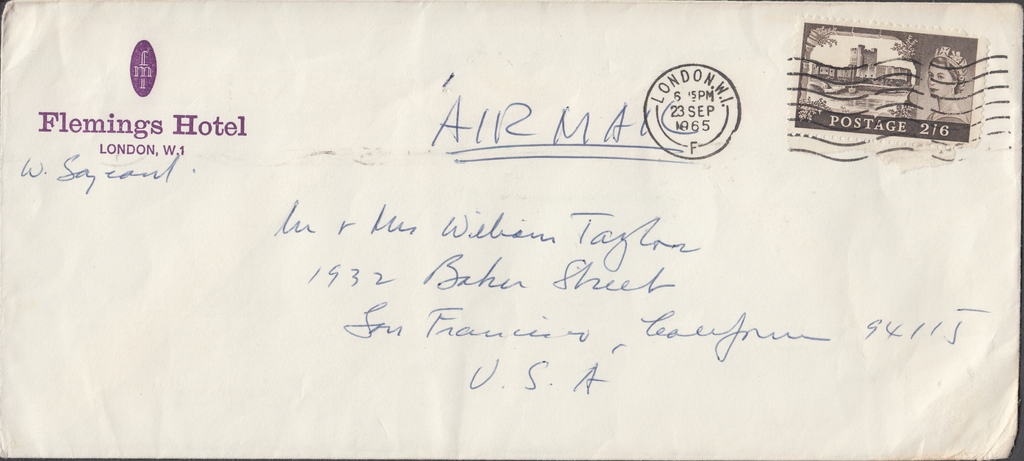 fml
Flemings Hotel
LONDON, W.1
W. Sargeant.
AIR MAIL
LONDON.W.1
6 15PM
23 SEP
1965
F
POSTAGE 2/6
Mr & Mrs William Taylor
1932 Baker Street
San Francisco, California 94115
U.S.A